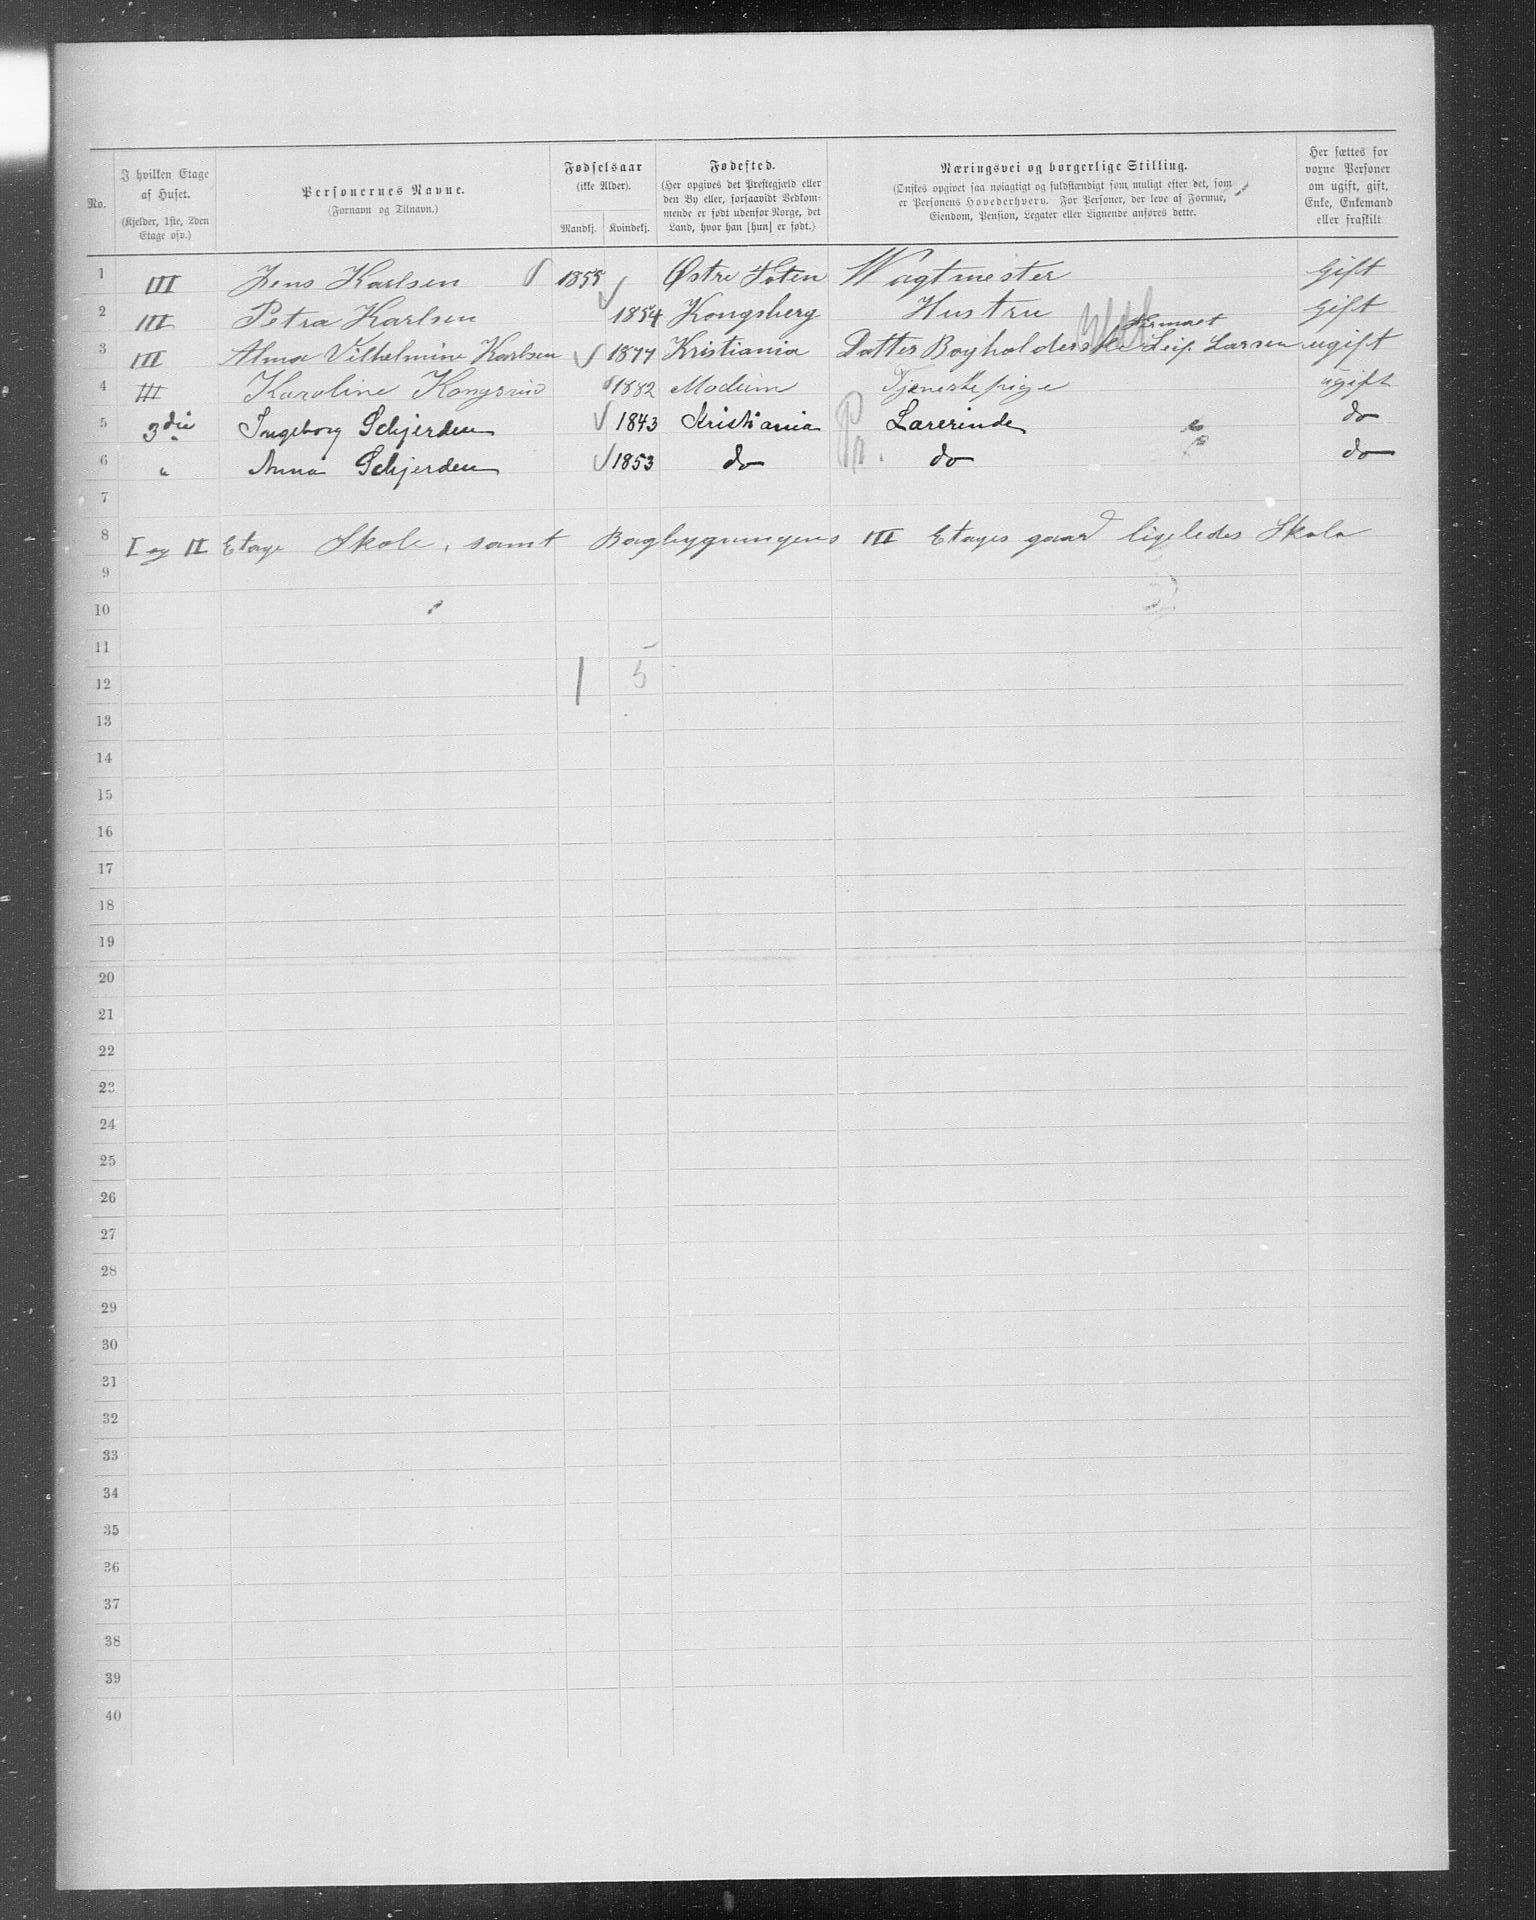 No. | I hvilken Etage af Huset. (Kjelder, 1ste, 2den Etage osv.) | Personernes Navne. (Fornavn og Tilnavn.) | Fødselsaar (ikke Alder). Mandkj. Kvindekj. | Fødested. (Her opgives det Præstegjæld eller den By eller, forsaavidt Vedkommende er født udenfor Norge, det Land, hvor han [hun] er født.) | Næringsvei og borgerlige Stilling. (Ønskes opgivet saa nøiagtigt og fuldstændigt som muligt efter det, som er Personens Hovederhverv. For Personer, der leve af Formue, Eiendom, Pension, Legater eller Lignende anføres dette. | Her sættes for voxne Personer om ugift, gift, Enke, Enkemand eller fraskilt
1 III Jens Karlsen 1855 Østre Toten Vagtmester Gift
2 III Petra Karlsen 1854 Kongsberg Hustru Gift
3 III Alma Vilhelmine Karlsen 1877 Kristiania Datter Bogholderske Larsen ugift
4 III Karoline Kongsrud 1882 Modum Tjenestepige ugift
5 3die Ingeborg Schjerden 1843 Kristiania Lærerinde do
6 " Anna Schjerden 1853 do do do
7
8 I og II Etage Skole, samt Bagbygningens III Etages gaard ligeledes Skole
9
10
11
12 1 5
13
14
15
16
17
18
19
20
21
22
23
24
25
26
27
28
29
30
31
32
33
34
35
36
37
38
39
40